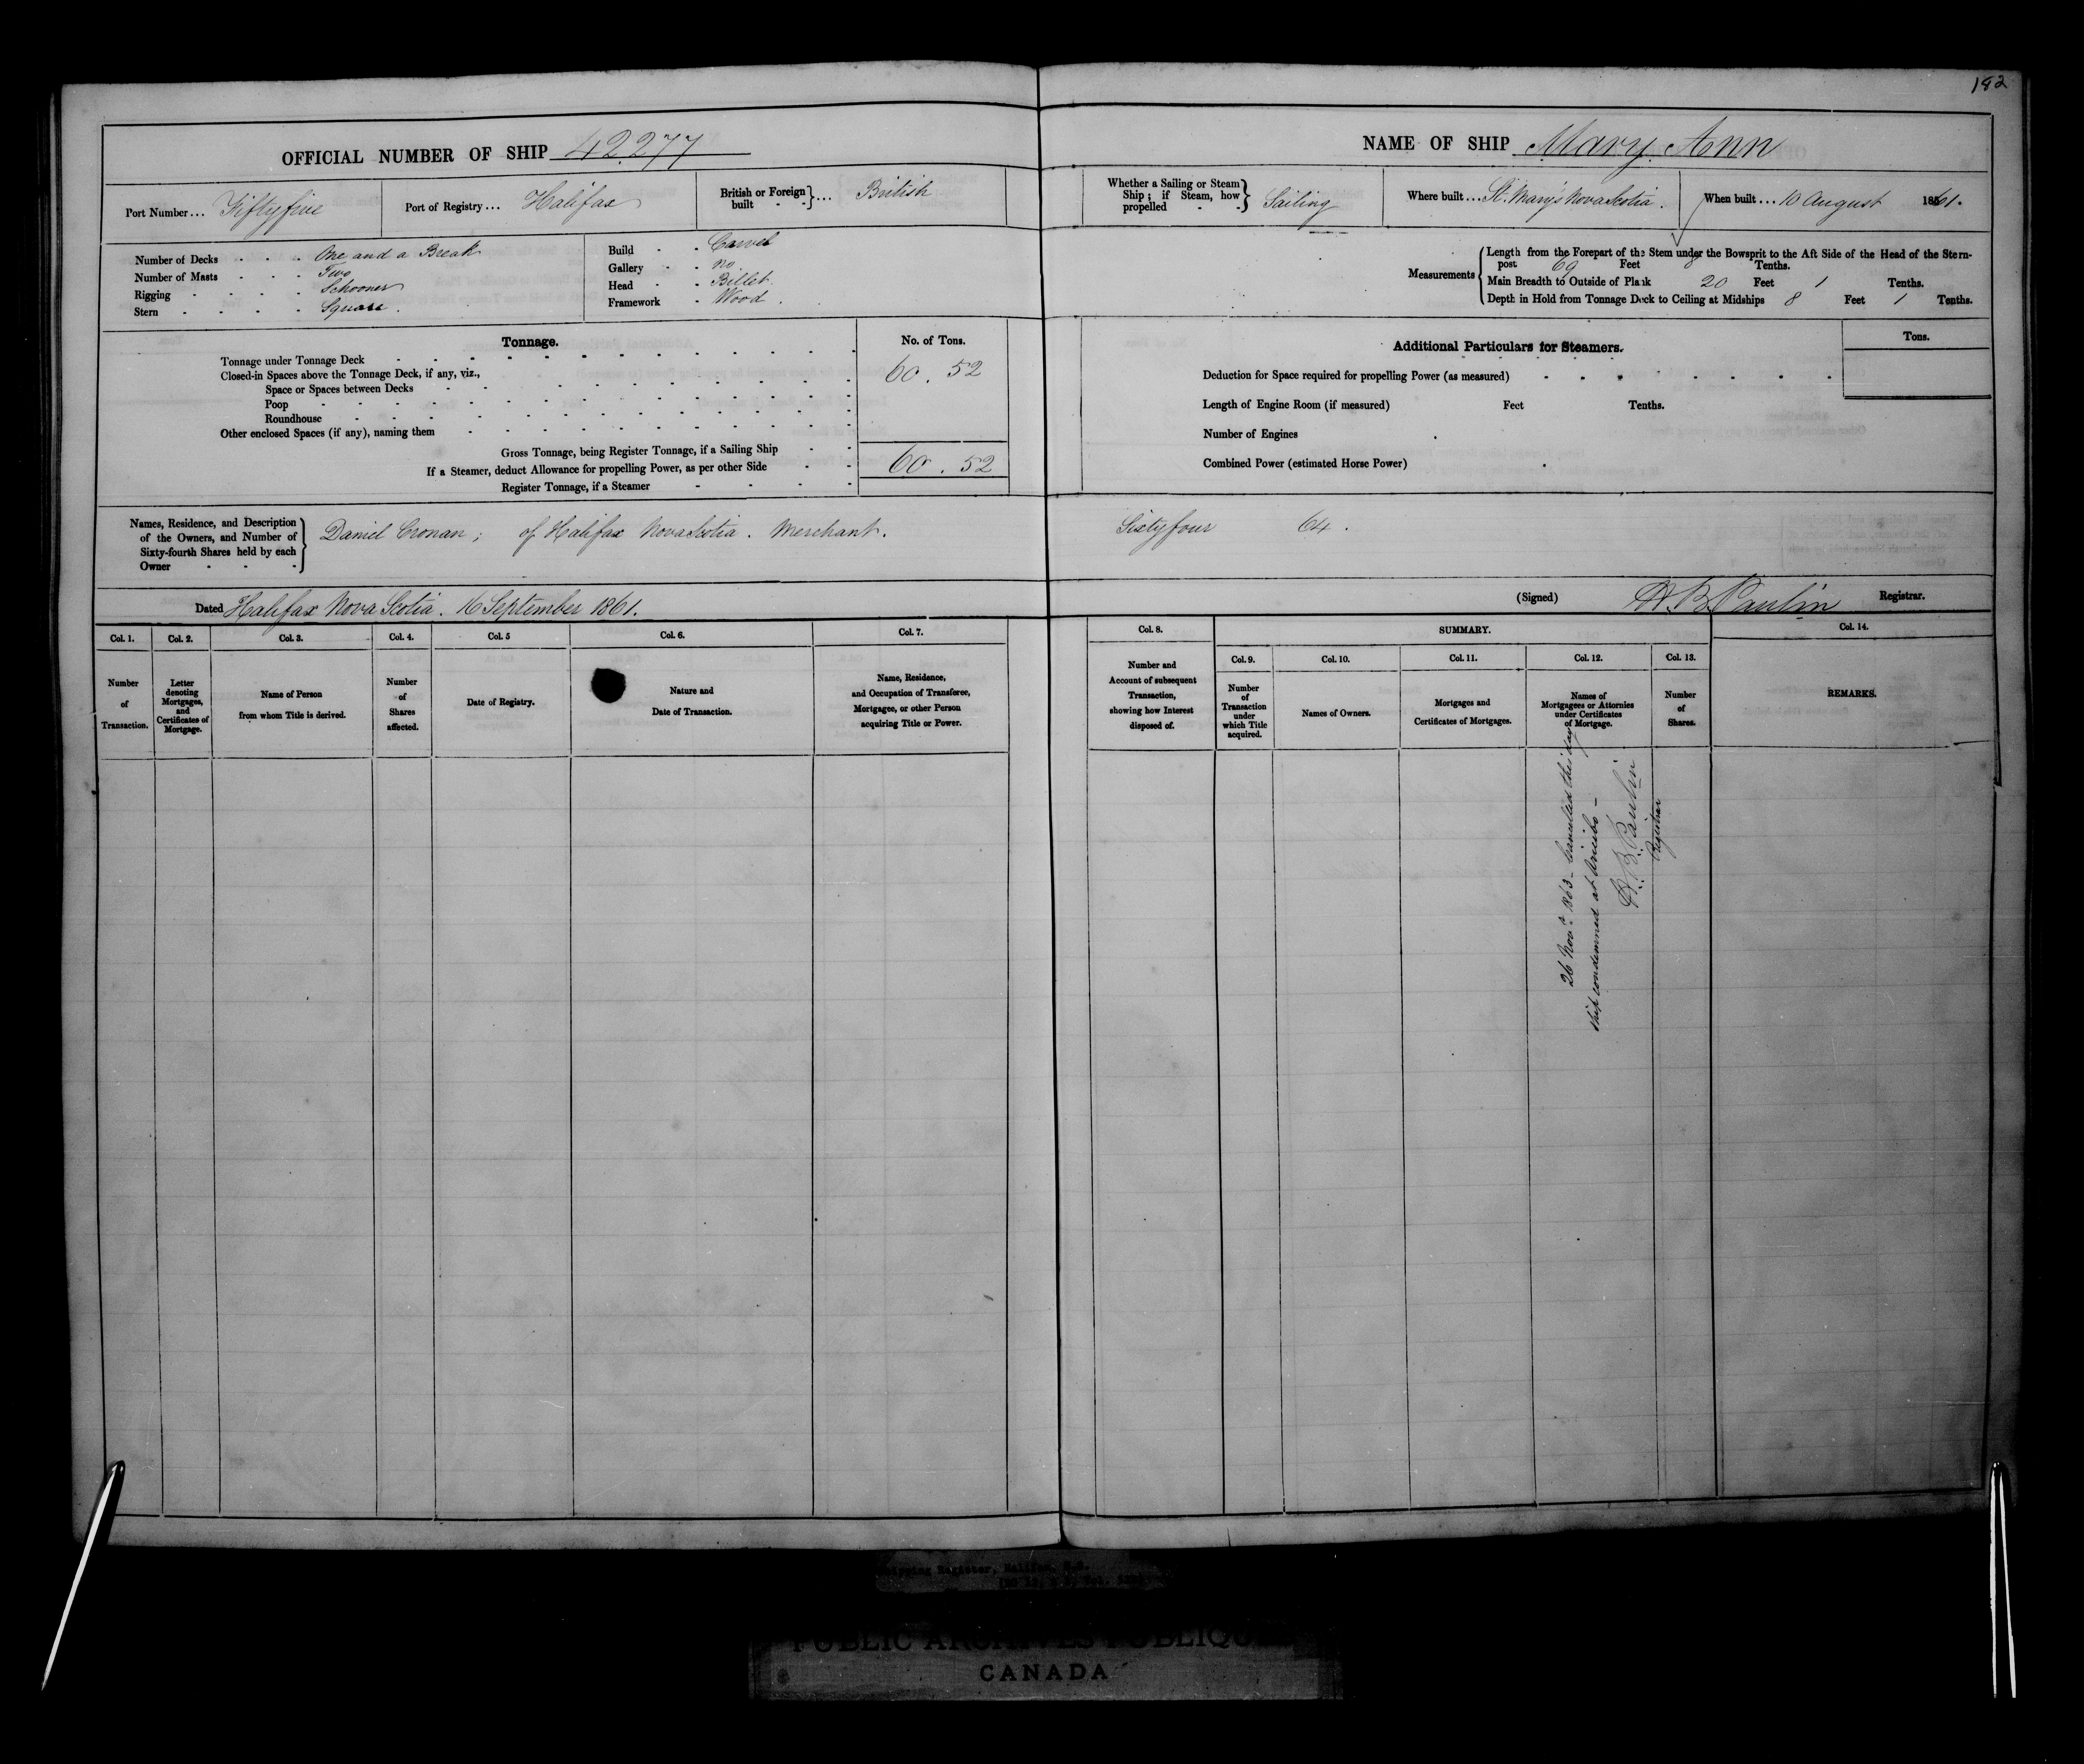 182
OFFICIAL NUMBER OF SHIP 42277
Port Number... Fiftyfive
Port of Registry... Halifax
British or Foreign built - - }... British
Number of Decks - - - One and a Break
Number of Masts - - - Two
Rigging - - - - Schooner
Stern - - - - Square.
Build - - Carvel
Gallery - - no
Head - - Billet
Framework - Wood.
Tonnage.
No. of Tons.
Tonnage under Tonnage Deck
Closed-in Spaces above the Tonnage Deck, if any, viz.,
60.52
Space or Spaces between Decks
Poop
Roundhouse
Other enclosed Spaces (if any), naming them
Gross Tonnage, being Register Tonnage, if a Sailing Ship
If a Steamer, deduct Allowance for propelling Power, as per other Side
60.52
Register Tonnage, if a Steamer
Names, Residence, and Description
of the Owners, and Number of
Sixty-fourth Shares held by each
Owner - - -
Daniel Cronan; of Halifax Nova Scotia. Merchant.
Dated Halifax Nova Scotia. 16 September 1861.
Col. 1.
Number
of
Transaction.
Col. 2.
Letter
denoting
Mortgages,
and
Certificates of
Mortgage.
Col. 3.
Name of Person
from whom Title is derived.
Col. 4.
Number
of
Shares
affected.
Col. 5
Date of Registry.
Col. 6.
Nature and
Date of Transaction.
Col. 7.
Name, Residence,
and Occupation of Transferee,
Mortgagee, or other Person
acquiring Title or Power.
NAME OF SHIP Mary Ann
Whether a Sailing or Steam
Ship; if Steam, how
propelled - - } Sailing
Where built... St. Mary's Nova Scotia.
When built... 10 August 1861.
Measurements
Length from the Forepart of the Stem under the Bowsprit to the Aft Side of the Head of the Stern-
post 69 Feet 8 Tenths.
Main Breadth to Outside of Plank 20 Feet 1 Tenths.
Depth in Hold from Tonnage Deck to Ceiling at Midships 8 Feet 1 Tenths.
Additional Particulars for Steamers.
Tons.
Deduction for Space required for propelling Power (as measured)
Length of Engine Room (if measured) Feet Tenths.
Number of Engines
Combined Power (estimated Horse Power)
Sixtyfour 64.
(Signed) H. B. Paulin Registrar.
Col. 8.
Number and
Account of subsequent
Transaction,
showing how Interest
disposed of.
SUMMARY.
Col. 9.
Number
of
Transaction
under
which Title
acquired.
Col. 10.
Names of Owners.
Col. 11.
Mortgages and
Certificates of Mortgages.
Col. 12.
Names of
Mortgagees or Attornies
under Certificates
of Mortgage.
Col. 13.
Number
of
Shares.
Col. 14.
REMARKS.
26 Novr. 1863 - Cancelled this day
Ship condemned at Arecibo -
H. B. Paulin
Registrar
Shipping Register, Halifax, N.S.
PUBLIC ARCHIVES PUBLIQUES
CANADA